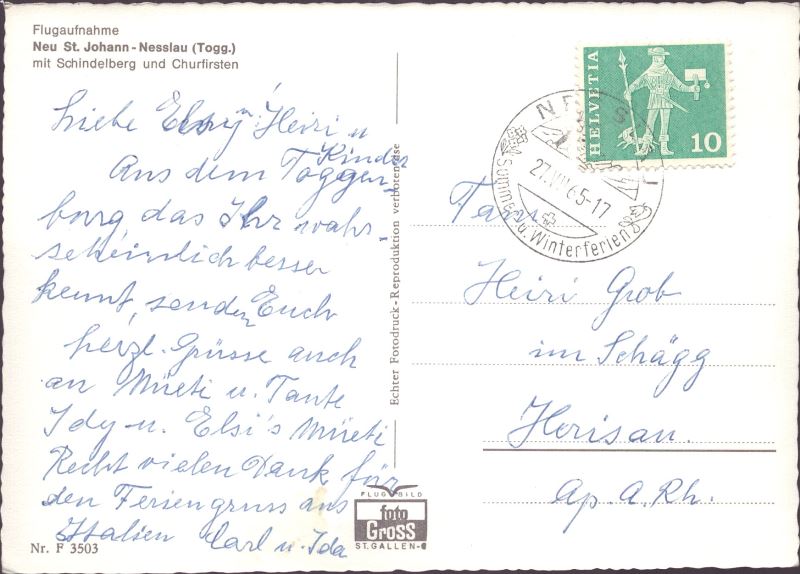 Flugaufnahme
Neu St. Johann - Nesslau (Togg.)
mit Schindelberg und Churfirsten
Liebe Elsy, Heiri u
Kinder
Aus dem Toggen,
burg, das Ihr wahr
scheinlich besser
kennt, senden Euch
herzl. Grüsse auch
an Müeti u. Tante
Idy u. Elsi's Müeti
Recht vielen Dank für
den Feriengruss aus
Italien Carl u. Ida
Nr. F 3503
Echter Fotodruck - Reproduktion verboten
FLUG BILD
foto
Gross
ST. GALLEN
HELVETIA
10
27.VII.65-17
Sommer u. Winterferien
Fam.
Heiri Grob
im Schägg
Herisau.
Ap. A. Rh.